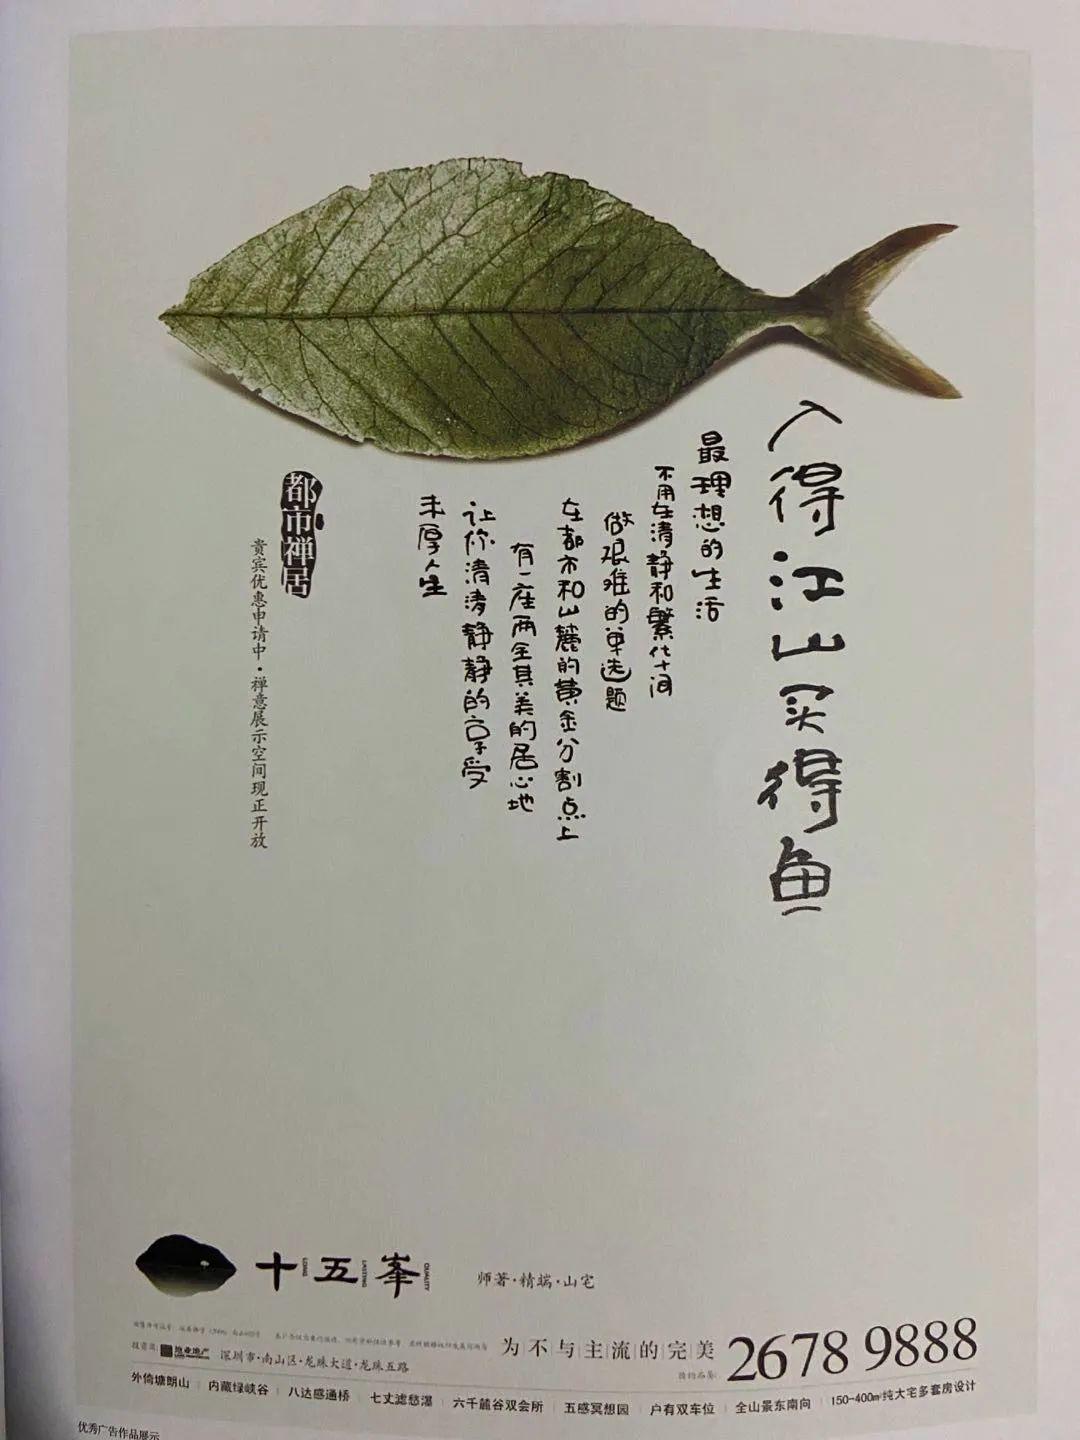 入得江山买得鱼
最理想的生活
不用在清静和繁华间
做艰难的单选题
在都市和山麓的黄金分割点上
有一座两全其美的居心地
让你清清静静的享受
丰厚人生
都市禅居
贵宾优惠申请中·禅意展示空间现正开放
十五峯
LONG LASTING QUALITY
师著·精端·山宅
投资商 地业地产 深圳市·南山区·龙珠大道·龙珠五路
为不与主流的完美
预约品鉴: 2678 9888
外倚塘朗山 内藏绿峡谷 八达感通桥 七丈滤愁瀑 六千麓谷双会所 五感冥想园 户有双车位 全山景东南向 150-400㎡纯大宅多套房设计
优秀广告作品展示